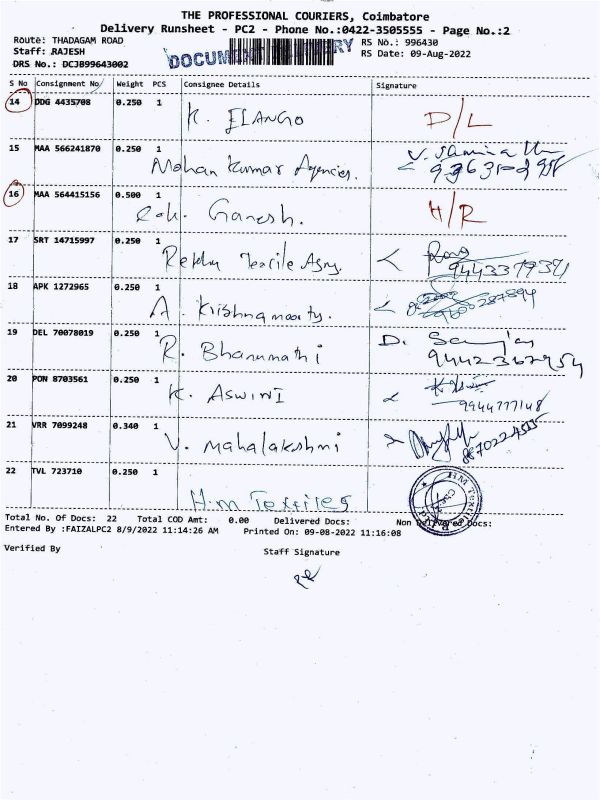 THE PROFESSIONAL COURIERS, Coimbatore
Delivery Runsheet - PC2 - Phone No.:0422-3505555 - Page No.:2
Route: THADAGAM ROAD
RS No.: 996430
Staff: RAJESH
RS Date: 09-Aug-2022
DRS No.: DCJB99643002
S No Consignment No Weight PCS Consignee Details Signature
14 DDG 4435708 0.250 1 K. ELANGO D/L
15 MAA 566241870 0.250 1 Mohan Kumar Agencies.
16 MAA 564415156 0.500 1 Ganesh. H/R
17 SRT 14715997 0.250 1 Textile
18 APK 1272965 0.250 1 A. Krishnamoorty.
19 DEL 70078019 0.250 1 R. Bhanumathi D. Sanjai
9442362954
20 PON 8703561 0.250 1 K. ASWINI
9944777148
21 VRR 7099248 0.340 1 V. Mahalakshmi
22 TVL 723710 0.250 1 H.m Textiles
Total No. Of Docs: 22 Total COD Amt: 0.00 Delivered Docs: Non Delivered Docs:
Entered By :FAIZALPC2 8/9/2022 11:14:26 AM Printed On: 09-08-2022 11:16:08
Verified By Staff Signature